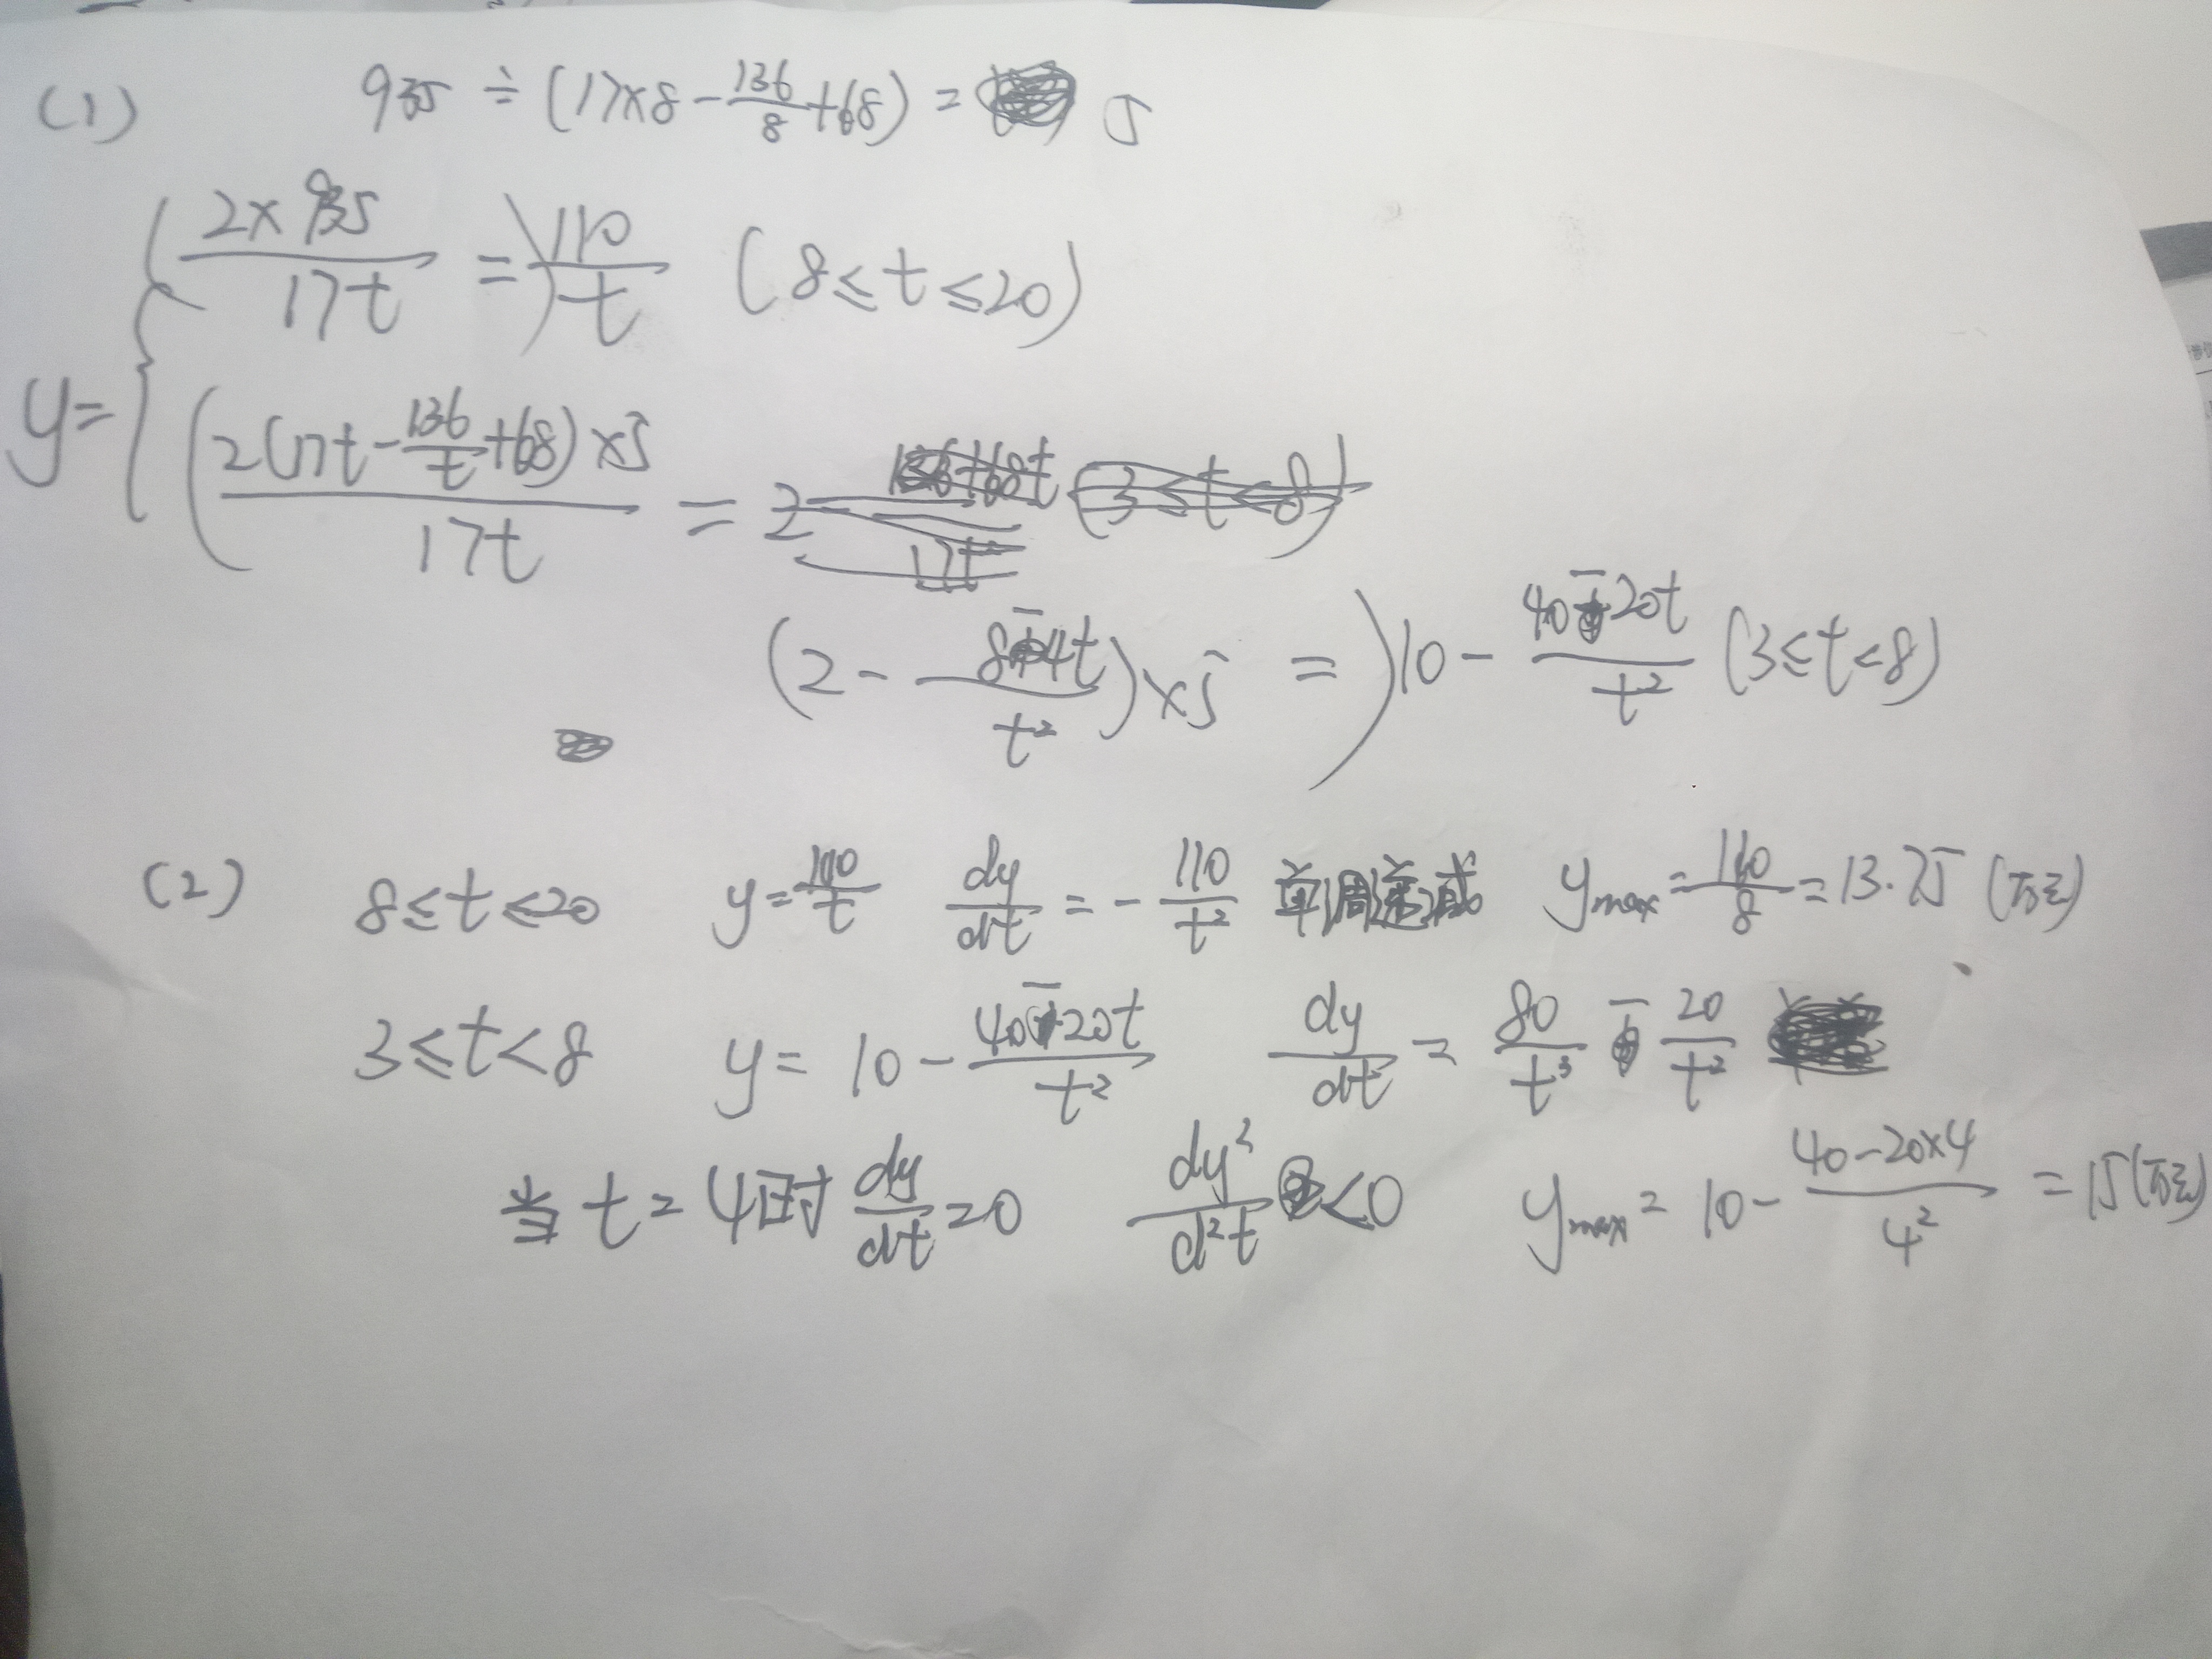 (1) 935 ÷ (17×8 - 136/8 + 68) = 5
y = { 2×935/17t = 110/t (8≤t≤20)
2(17t - 136/t + 68)×5/17t = 2
(2 - (8-4t)/t²)×5 = 10 - (40-20t)/t² (3≤t<8)
(2) 8≤t≤20 y=110/t dy/dt = -110/t² 单调递减 ymax = 110/8 = 13.75 (万元)
3≤t<8 y = 10 - (40-20t)/t² dy/dt = 80/t³ - 20/t²
当 t=4时 dy/dt=0 dy²/d²t <0 ymax = 10 - (40-20×4)/4² = 15(万元)